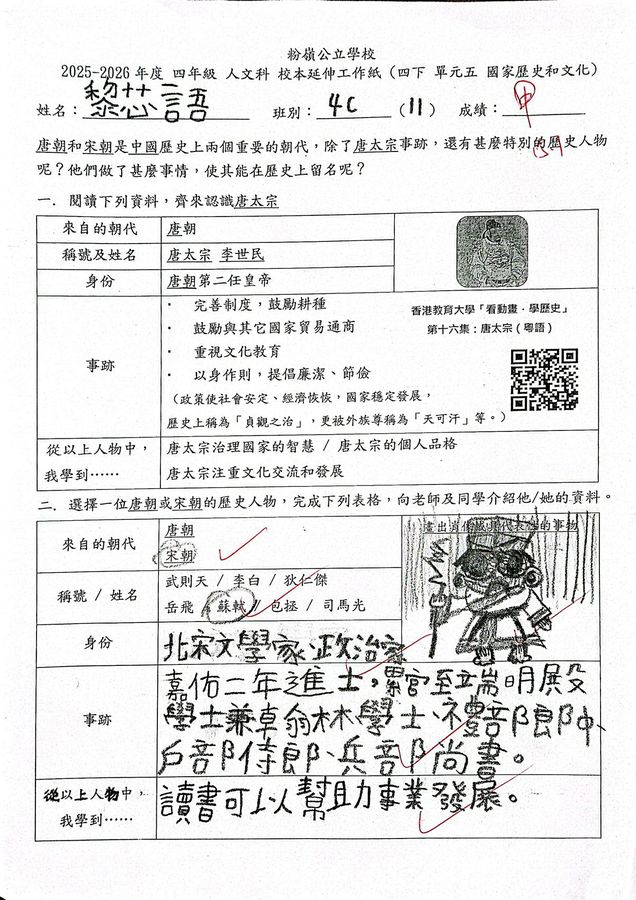 粉嶺公立學校
2025-2026 年度 四年級 人文科 校本延伸工作紙（四下 單元五 國家歷史和文化）
姓名：黎芯語 班別：4C （11） 成績：中
唐朝和宋朝是中國歷史上兩個重要的朝代，除了唐太宗事跡，還有甚麼特別的歷史人物
呢？他們做了甚麼事情，使其能在歷史上留名呢？
一. 閱讀下列資料，齊來認識唐太宗
來自的朝代 唐朝
稱號及姓名 唐太宗 李世民
身份 唐朝第二任皇帝
事跡
· 完善制度，鼓勵耕種
· 鼓勵與其它國家貿易通商
· 重視文化教育
· 以身作則，提倡廉潔、節儉
（政策使社會安定、經濟恢恢，國家穩定發展，
歷史上稱為「貞觀之治」，更被外族尊稱為「天可汗」等。）
香港教育大學「看動畫‧學歷史」
第十六集：唐太宗（粵語）
從以上人物中，
我學到……
唐太宗治理國家的智慧 / 唐太宗的個人品格
唐太宗注重文化交流和發展
二. 選擇一位唐朝或宋朝的歷史人物，完成下列表格，向老師及同學介紹他/她的資料。
來自的朝代
唐朝
宋朝
畫出肖像或具代表性的事物
稱號 / 姓名
武則天 / 李白 / 狄仁傑
岳飛 / 蘇軾 / 包拯 / 司馬光
身份 北宋文學家、政治家
事跡
嘉佑二年進士，累官至端明殿
學士兼翰林學士、禮部郎
戶部侍郎、兵部尚書。
從以上人物中，
我學到……
讀書可以幫助事業發展。